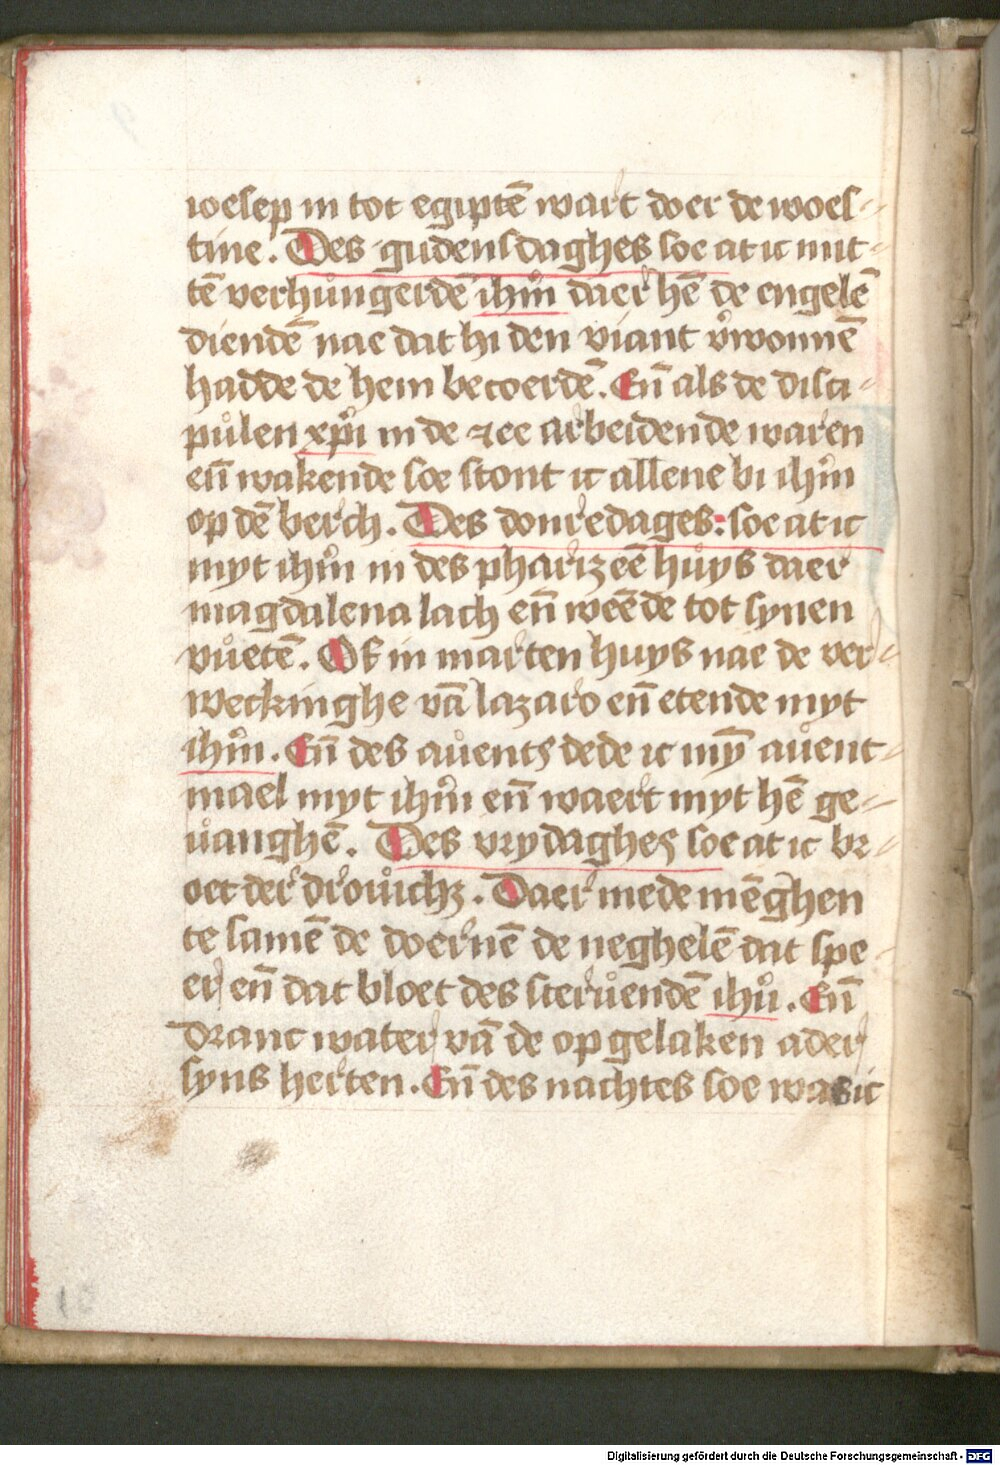 ioesep in tot egiptē wart doer de woes-
tine. Des gudensdaghes soe at ic mit-
tē verhůngerdē ihm̊ daer hē de engelē
diendē nae dat hi den viant v̊wonnē
hadde de hem becoerdē. Eñ als de disci-
půlen xp̊i in de zee arbeidende waren
eñ wakende soe stont ic allene bi ihm̊
op dē berch. Des donredages: soe at ic
myt ihm̊ in des pharizeē hůys daer
magdalena lach eñ weēde tot synen
vůetē. Of in marten huys nae de ver-
weckinghe vā lazaro eñ etende myt
ihm̊. Eñ des aůents dede ic mȳ aůent-
mael myt ihm̊ eñ waert myt hē ge-
ůanghē. Des vrydaghes soe at ic br-
oet der droůichz. Daer mede mēghen
te samē de doernē de neghelē dat spe-
er eñ dat bloet des sterůendē ihů. Eñ
dranc water vā de op gelaken ader
syns herten. Eñ des nachtes soe was ic
Digitalisierung gefördert durch die Deutsche Forschungsgemeinschaft - DFG